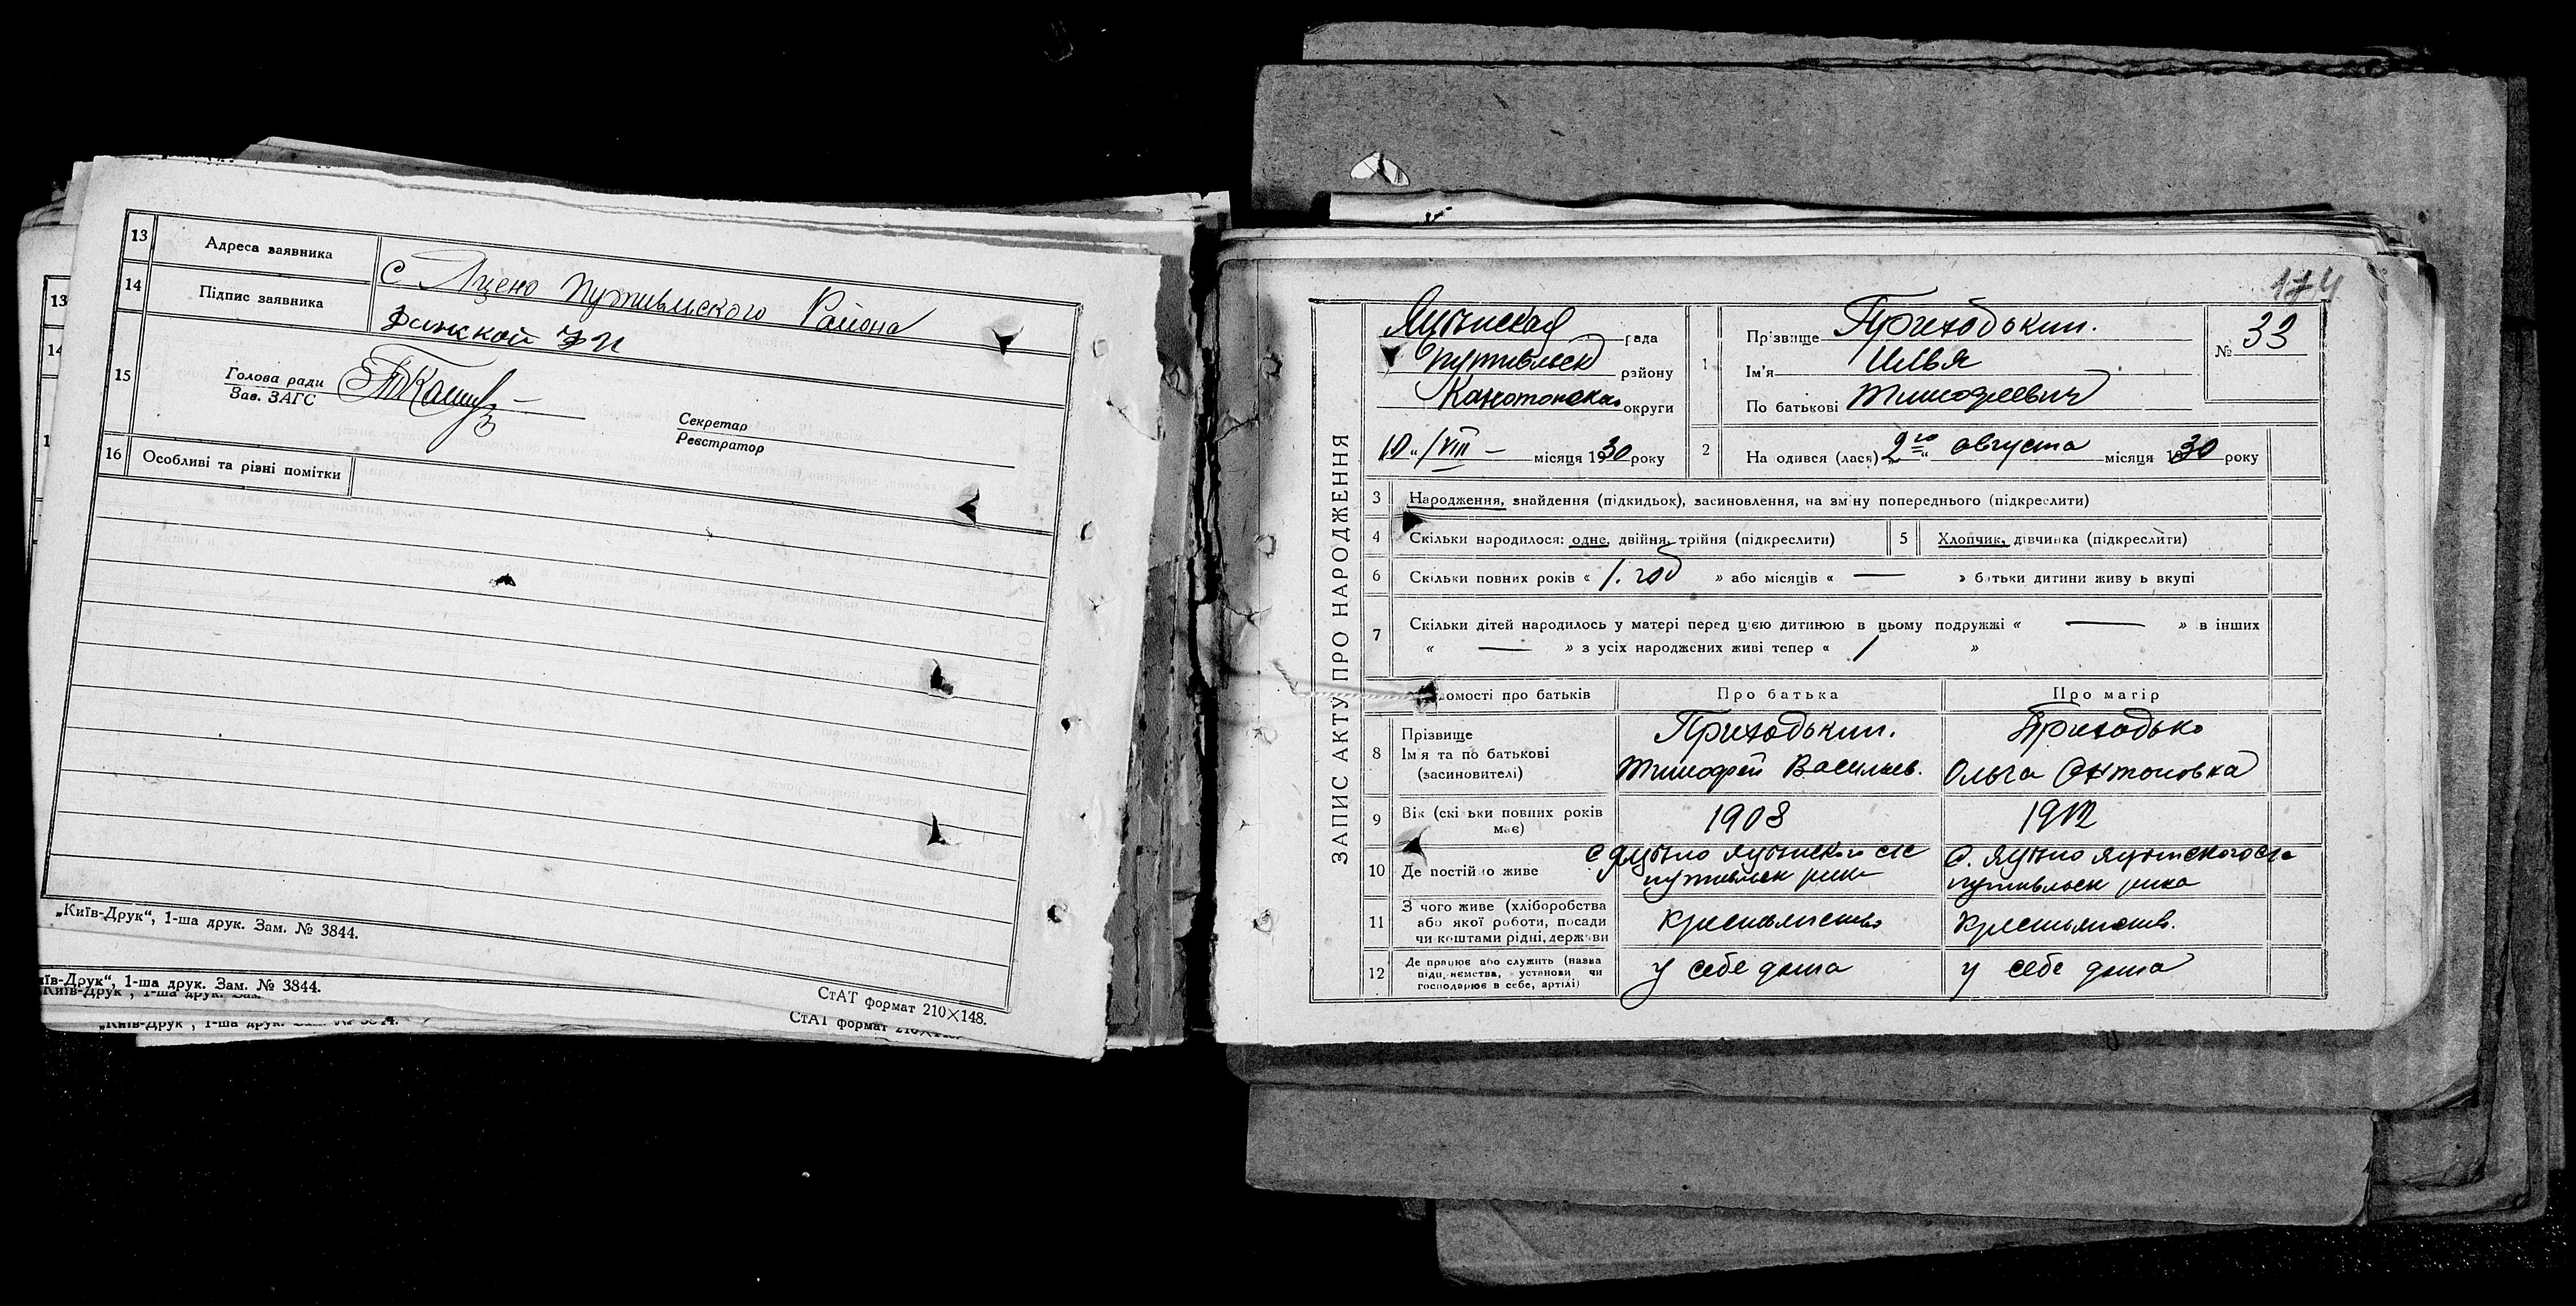 13 Адреса заявника С Яцено Путивлского Района
14 Підпис заявника
15 Голова ради
Зав. ЗАГС
Секретар
Реєстратор
16 Особливі та різні помітки
„Київ-Друк“, 1-ша друк. Зам. № 3844.
СтАТ формат 210×148.
їв-Друк“, 1-ша друк. Зам. № 3844.
СтАТ формат
13
14
174
ЗАПИС АКТУ ПРО НАРОДЖЕННЯ
Яцынская рада
Путивльск району
Канотопская округи
10 „/VIII – місяця 1930 року
1 Прізвище Приходькин.
Ім’я Илья
По батькові Тимофеевич
№ 33
2 Народився (лася) „2го“ августа місяця 1930 року
3 Народження, знайдення (підкидьок), засиновлення, на зміну попереднього (підкреслити)
4 Скільки народилося: одне, двійня, трійня (підкреслити)
5 Хлопчик, дівчинка (підкреслити)
6 Скільки повних років « 1. год » або місяців « — » батьки дитини живуть вкупі
7 Скільки дітей народилось у матері перед цією дитиною в цьому подружжі « — » в інших
« — » з усіх народжених живі тепер « 1 »
домості про батьків Про батька Про матір
8 Прізвище
Ім’я та по батькові
(засиновителі)
Приходькин.
Тимофей Васильев.
Приходько
Ольга Антоновна
9 Вік (скільки повних років
має)
1908
1912
10 Де постійно живе
с Яцыно Яцынского с/с
путивльск рика
С. Яцыно Яцынского с/с
путивльск рика
11 З чого живе (хліборобства
або якої роботи, посади
чи коштами рідні, держави
крестьянство
Крестьянств.
12 Де працює або служить (назва
підприємства, установи чи
господарює в себе, артілі)
у себе дома
у себе дома